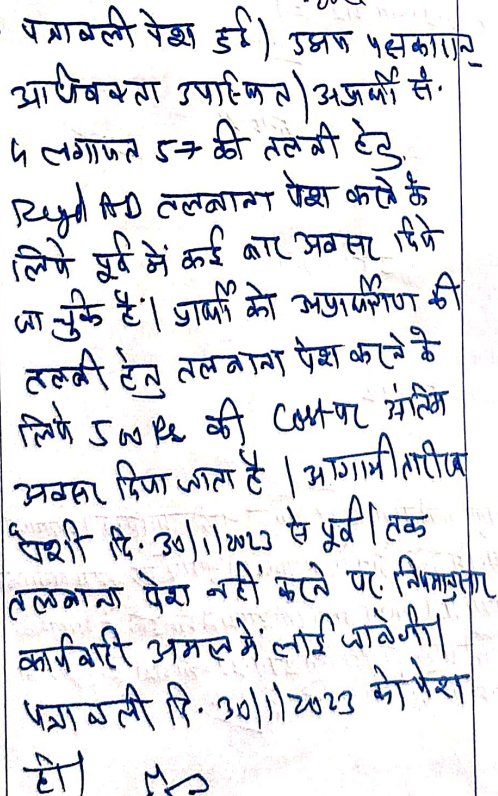 पत्रावली पेश हुई। उभय पक्षकारान्
अधिवक्ता उपस्थित। अप्रार्थी सं.
4 लगायत 57 की तलबी हेतु
Regd AD तलबाना पेश करने के
लिये पूर्व में कई बार अवसर दिये
जा चुके हैं। प्रार्थी को अप्रार्थीगण की
तलबी हेतु तलबाना पेश करने के
लिये 500 Rs की Cost पर अंतिम
अवसर दिया जाता है। आगामी तारीख
पेशी दि. 30/1/2023 से पूर्व। तक
तलबाना पेश नहीं करने पर नियमानुसार
कार्यवाही अमल में लाई जावेगी।
पत्रावली दि. 30/1/2023 को पेश
हो।